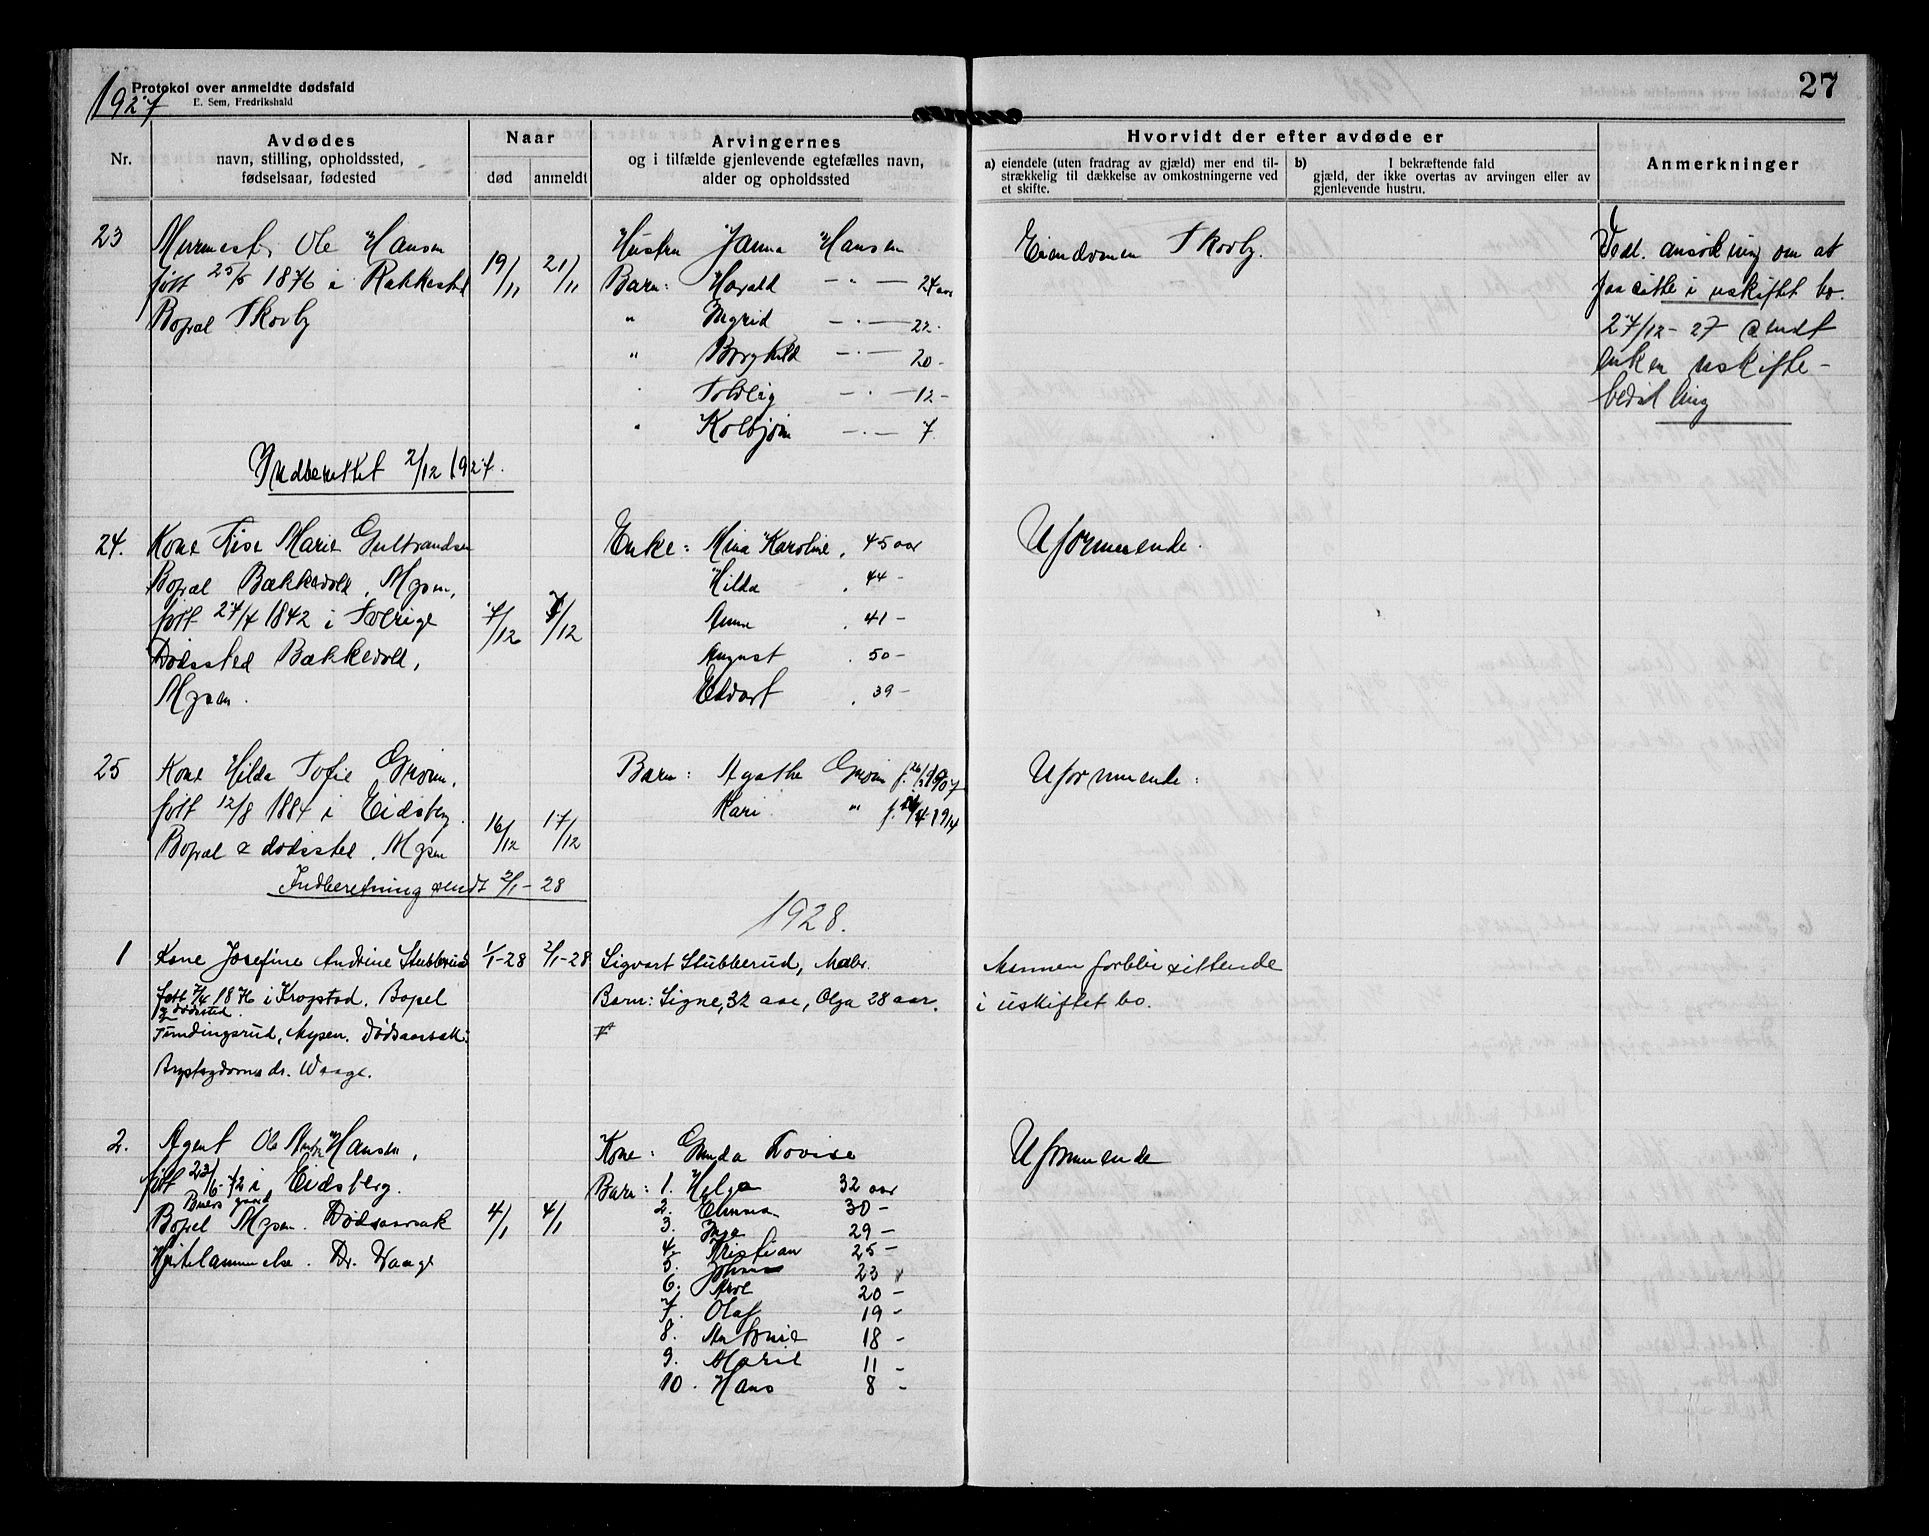 1927
Protokol over anmeldte dødsfald
E. Sem, Fredrikshald
27
Nr.
Avdødes
navn, stilling, opholdssted,
fødselsaar, fødested
Naar
død
anmeldt
Arvingernes
og i tilfælde gjenlevende egtefælles navn,
alder og opholdssted
Hvorvidt der efter avdøde er
a) eiendele (uten fradrag av gjæld) mer end til-
strækkelig til dækkelse av omkostningerne ved
et skifte.
b) I bekræftende fald
gjæld, der ikke overtas av arvingen eller av
gjenlevende hustru.
Anmerkninger
23
Murmest. Ole Hansen
født 25/5 1876 i Rakkestad
Bopæl Skovby
19/11
21/11
Hustru Janna Hansen
Barn: Harald — " — 24 aar
" Ingrid — " — 22 -
" Borghild — " — 20 -
" Solveig — " — 12 -
" Kolbjørn — " — 7
Eiendommen Skovby.
Vedl. ansökning om at
faa sitte i uskiftet bo.
27/12 - 27 sendt
enken uskifte-
bevilling
Indberettet 2/12 1927.
24.
Kone Lise Marie Gulbrandsen
Bopæl Bækkevold, Mysen,
født 27/4 1842 i Sverige
Dødssted Bækkevold,
Mysen.
7/12
7/12
Enke: Mina Karoline, 45 aar
Hilda . 44 -
Anna . 41 -
August . 50 -
Edvart . 39 -
Uformuende.
25
Kone Hilda Sofie Grøm,
født 12/8 1884 i Eidsberg.
Bopæl & dødssted, Mysen
16/12
17/12
Barn: Agathe Grøm f. 26/3 1907
Kari " f. /4 1914
Uformuende.
Indberetning sendt 2/1 - 28
1928.
1
Kone Josefine Andrine Stubberud
født 7/4 1876 i Krogstad. Bopel
& dødssted.
Tundingsrud, Mysen. Dødsaarsak:
dr. Waage.
1/1-28
2/1-28
Sigvart Stubberud, Maler.
Barn: Signe, 32 aar, Olga 28 aar.
Mannen forblir sittende
i uskiftet bo.
2.
Agent Ole Hansen,
født 23/6-72 i Eidsberg.
Buers gaard
Bopæl Mysen. Dødsaarsak
Hjertelammelse. Dr. Waage
4/1
4/1
Kone: Gunda Lovise
Barn: 1. Helga 32 aar
2. Emma 30 -
3. Inga 29 -
4. Kristian 25 -
5. Johan 23
6. Arve 20 -
7. Olaf 19 -
8. Antonie 18 -
9. Marie 11 -
10. Hans 8 -
Uformuende